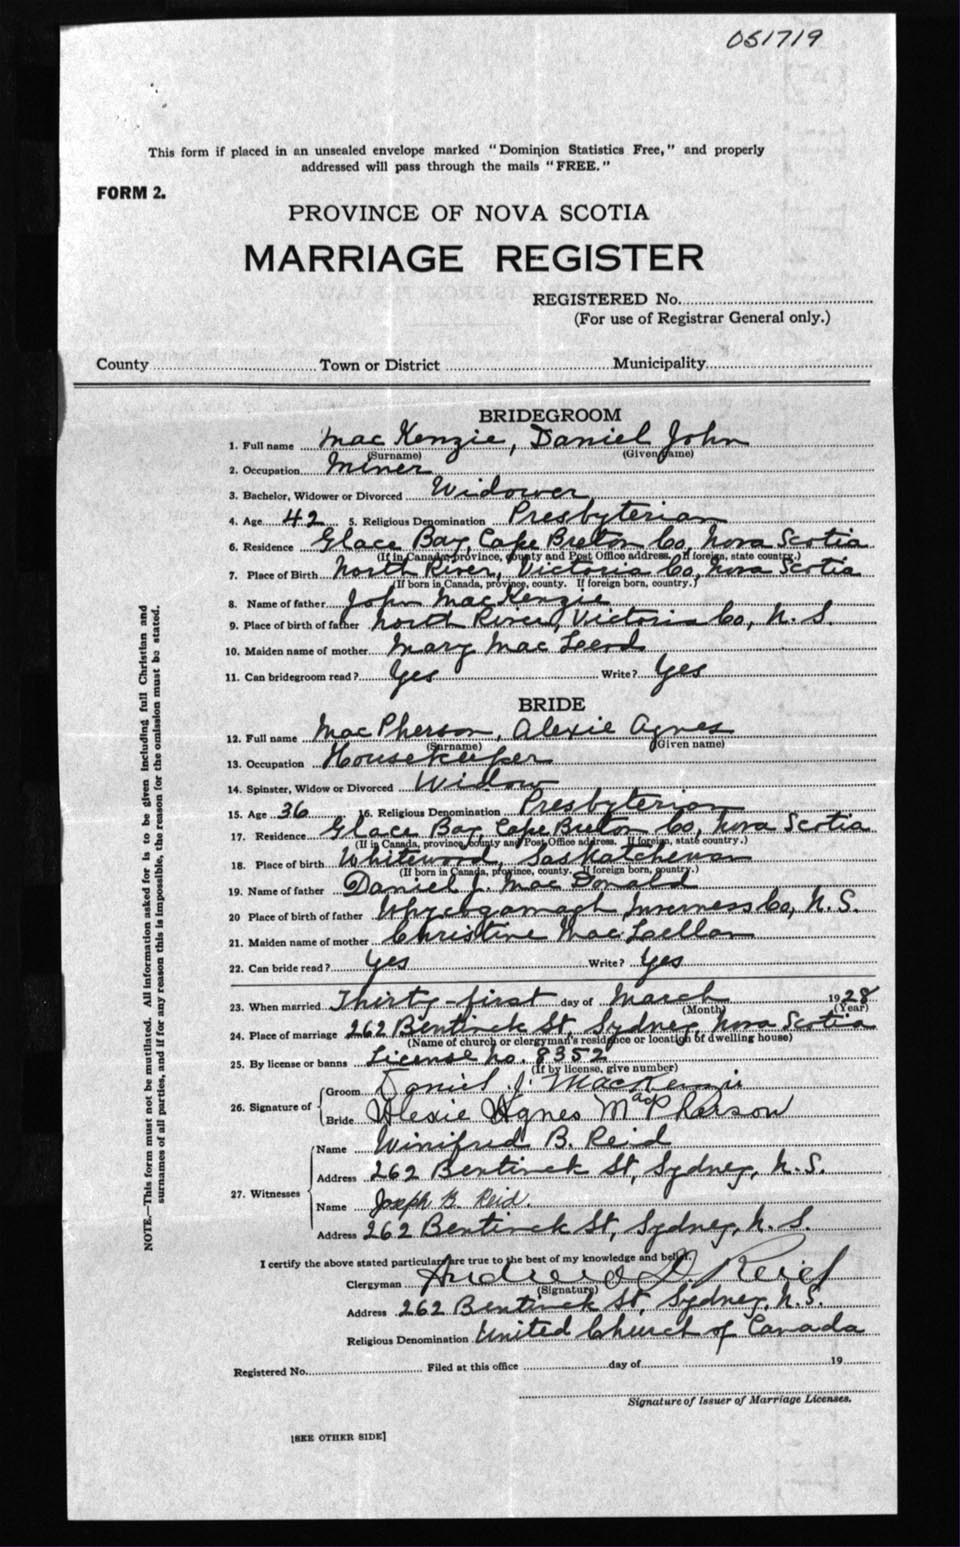 051719
This form if placed in an unsealed envelope marked "Dominion Statistics Free," and properly
addressed will pass through the mails "FREE."
FORM 2.
PROVINCE OF NOVA SCOTIA
MARRIAGE REGISTER
REGISTERED No.
(For use of Registrar General only.)
County Town or District Municipality
BRIDEGROOM
1. Full name MacKenzie, Daniel John
(Surname) (Given name)
2. Occupation Miner
3. Bachelor, Widower or Divorced Widower
4. Age 42 5. Religious Denomination Presbyterian
6. Residence Glace Bay, Cape Breton Co, Nova Scotia
(If in Canada, province, county and Post Office address. If foreign, state country.)
7. Place of Birth North River, Victoria Co, Nova Scotia
(If born in Canada, province, county. If foreign born, country.)
8. Name of father John MacKenzie
9. Place of birth of father North River, Victoria Co, N. S.
10. Maiden name of mother Mary MacLeod
11. Can bridegroom read? Yes Write? Yes
BRIDE
12. Full name MacPherson, Alexie Agnes
(Surname) (Given name)
13. Occupation Housekeeper
14. Spinster, Widow or Divorced Widow
15. Age 36 16. Religious Denomination Presbyterian
17. Residence Glace Bay, Cape Breton Co, Nova Scotia
(If in Canada, province, county and Post Office address. If foreign, state country.)
18. Place of birth Whitewood, Saskatchewan
(If born in Canada, province, county. If foreign born, country.)
19. Name of father Daniel J. MacDonald
20 Place of birth of father Whycogamagh Inverness Co, N. S.
21. Maiden name of mother Christine MacLellan
22. Can bride read? Yes Write? Yes
23. When married Thirty-first day of March 1928
(Month) (Year)
24. Place of marriage 262 Bentinck St, Sydney, Nova Scotia
(Name of church or clergyman's residence or location of dwelling house)
25. By license or banns License No. 8352
(If by license, give number)
26. Signature of Groom Daniel J. MacKenzie
Bride Alexie Agnes MacPherson
27. Witnesses Name Winifred B. Reid
Address 262 Bentinck St, Sydney, N. S.
Name Joseph B. Reid.
Address 262 Bentinck St, Sydney, N. S.
I certify the above stated particulars are true to the best of my knowledge and belief.
Clergyman Andrew D. Reid
(Signature)
Address 262 Bentinck St, Sydney, N. S.
Religious Denomination United Church of Canada
Registered No. Filed at this office day of 19
Signature of Issuer of Marriage Licenses.
[SEE OTHER SIDE]
NOTE.—This form must not be mutilated. All information asked for is to be given including full Christian and
surnames of all parties, and if for any reason this is impossible, the reason for the omission must be stated.